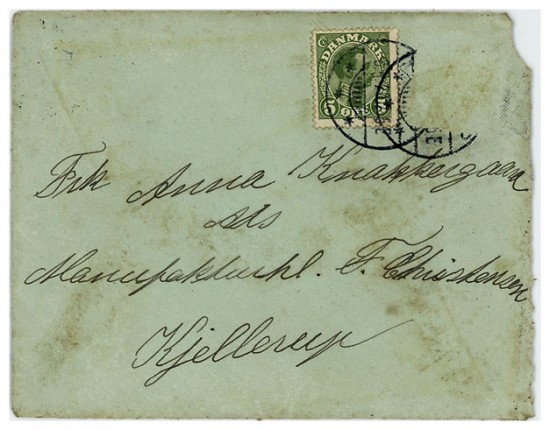 DANMARK
5 5
Frk Anna Knakkergaard
Ads
Manufakturhl. F. Christensen
Kjellerup